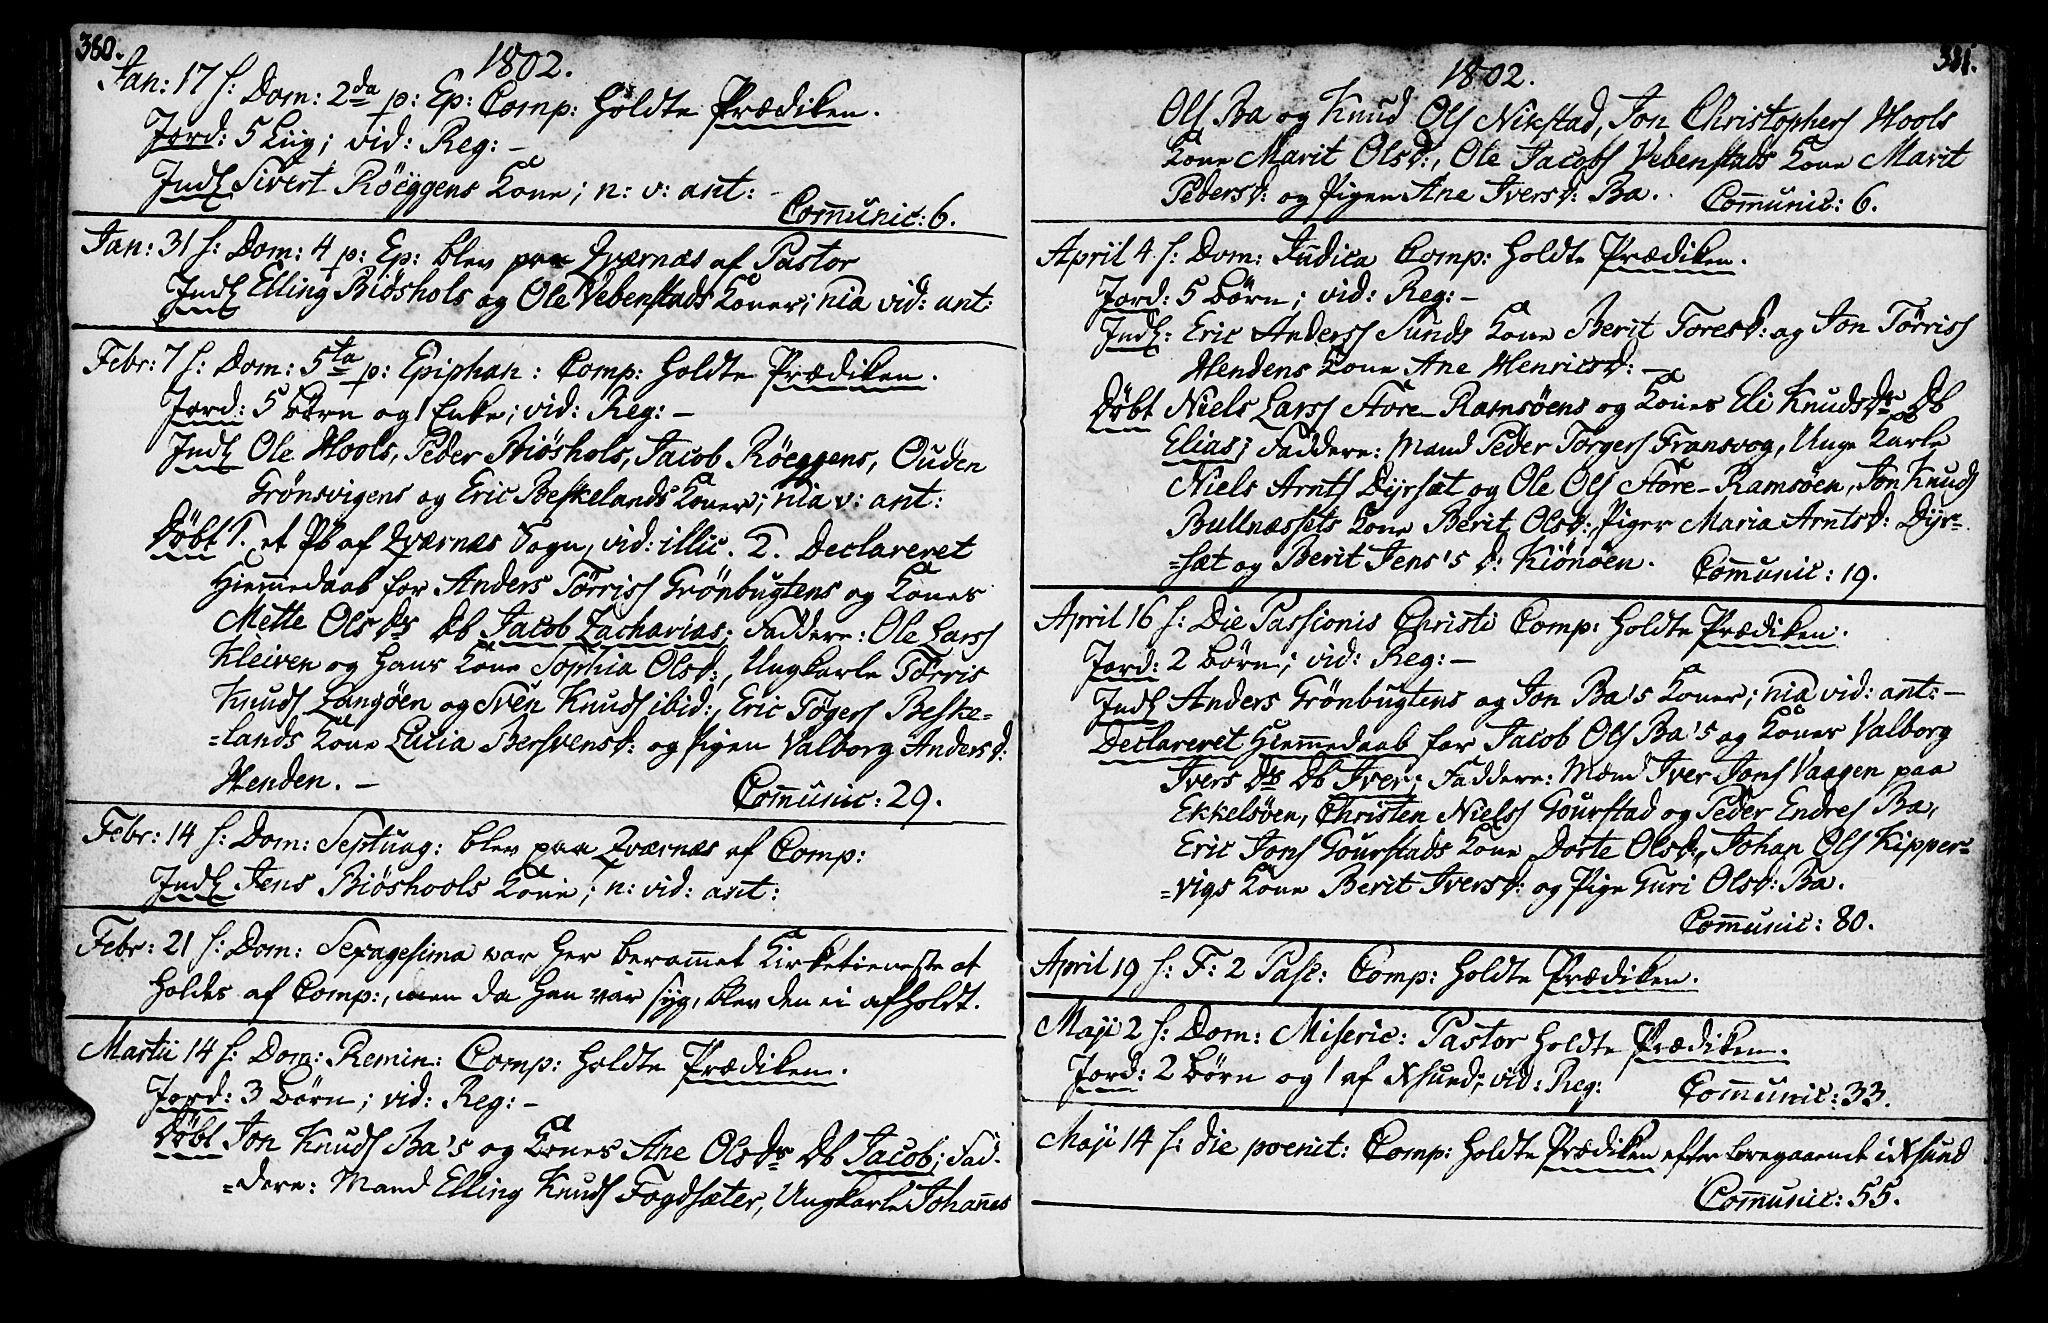 380.
1802.
Jan: 17 s: Dom: 2da p: Ep: Comp: holdte Prædiken.
Jord: 5 Liig; vid: Reg: –
Indl Sivert Röeggens Kone; n: v: ant: –
Com̄unic: 6.
Jan: 31 s: Dom: 4 p: Ep: blev paa Qværnæs af Pastor
Indl Elling Biöshols og Ole Vebenstads Koner; nia vid: ant:
Febr: 7 s: Dom: 5ta p: Epiphan: Comp: holdte Prædiken.
Jord: 5 Börn og 1 Enke; vid: Reg: –
Indl Ole Hools, Peder Biöshols, Jacob Röeggens, Ouden
Grönsvigens og Eric Beskelands Koner; nia v: ant:
Döbt 1. et Pb af Qværnæs Sogn, vid: illic. 2. Declareret
Hiem̄edaab for Anders Törriss Grönbugtens og Kones
Mette Olsdrs Db Jacob Zacharias; Faddere: Ole Larss
Kleiven og hans Kone Sophia Olsd:, Ungkarle Törris
Knuds Langöen og Sven Knuds ibid:, Eric Togers Beske-
=lands Kone Lucia Bersvensd: og Pigen Valborg Andersd:
Henden. –
Com̄unic: 29.
Febr: 14 s: Dom: Septuag: blev paa Qværnæs af Comp:
Indl Jens Biöshools Kone; n: vid: ant:
Febr: 21 s: Dom: Sexagesima var her beram̄et Kirketieneste at
holdes af Comp:, men da han var syg, blev den ei afholdt.
Martii 14 s: Dom: Remin: Comp: holdte Prædiken.
Jord: 3 Börn; vid: Reg: –
Döbt Jon Knuds Ba's og Kones Ane Olsdrs Db Jacob; Fad-
=dere: Mand Elling Knuds Fogdsæter, Ungkarle Johan̄es
381.
1802.
Ols Ba og Knud Ols Nikstad, Jon Christophers Hools
Kone Marit Olsd:, Ole Jacobs Vebenstads Kone Marit
Pedersd: og Pigen Ane Iversd: Ba. Com̄unic: 6.
April 4 s: Dom: Judica Comp: holdte Prædiken.
Jord: 5 Börn; vid: Reg: –
Indl: Eric Anderss Sunds Kone Berit Toresd: og Jon Törriss
Hendens Kone Ane Henricsd: –
Döbt Niels Larss Store-Ramsöens og Kones Eli Knudsdrs Db
Elias; Faddere: Mand Peder Torgers Fransvog, Unge Karle
Niels Arnts Dyrsæt og Ole Ols Store-Ramsöen, Jon Knuds
Bullnæssets Kone Berit Olsd:, Piger Maria Arntsd: Dyr-
=sæt og Berit Jens's d: Kiönöen. Com̄unic: 19.
April 16 s: Die Passionis Christi Comp: holdte Prædiken.
Jord: 2 Börn; vid: Reg: –
Indl Anders Grönbugtens og Jon Ba's Koner; nia vid: ant: –
Declareret Hiem̄edaab for Jacob Ols Ba's og Kones Valborg
Ivers drs Db Iver; Faddere: Mand Iver Jons Vaagen paa
Ekkelsöen, Christen Nielss Gourstad og Peder Endres Ba,
Eric Jons Gourstads Kone Dorte Olsd:, Johan Ols Kipper-
=vigs Kone Berit Iversd: og Pige Guri Olsd: Ba.
Com̄unic: 80.
April 19 s: F: 2 Pasc: Comp: holdte Prædiken.
Maji 2 s: Dom: Miseric: Pastor holdte Prædiken.
Jord: 2 Börn og 1 af Xsund; vid: Reg: Com̄unic: 33.
Maji 14 s: die poenit: Comp: holdte Prædiken efter Foregaaende i Xsund
Com̄unic: 55.